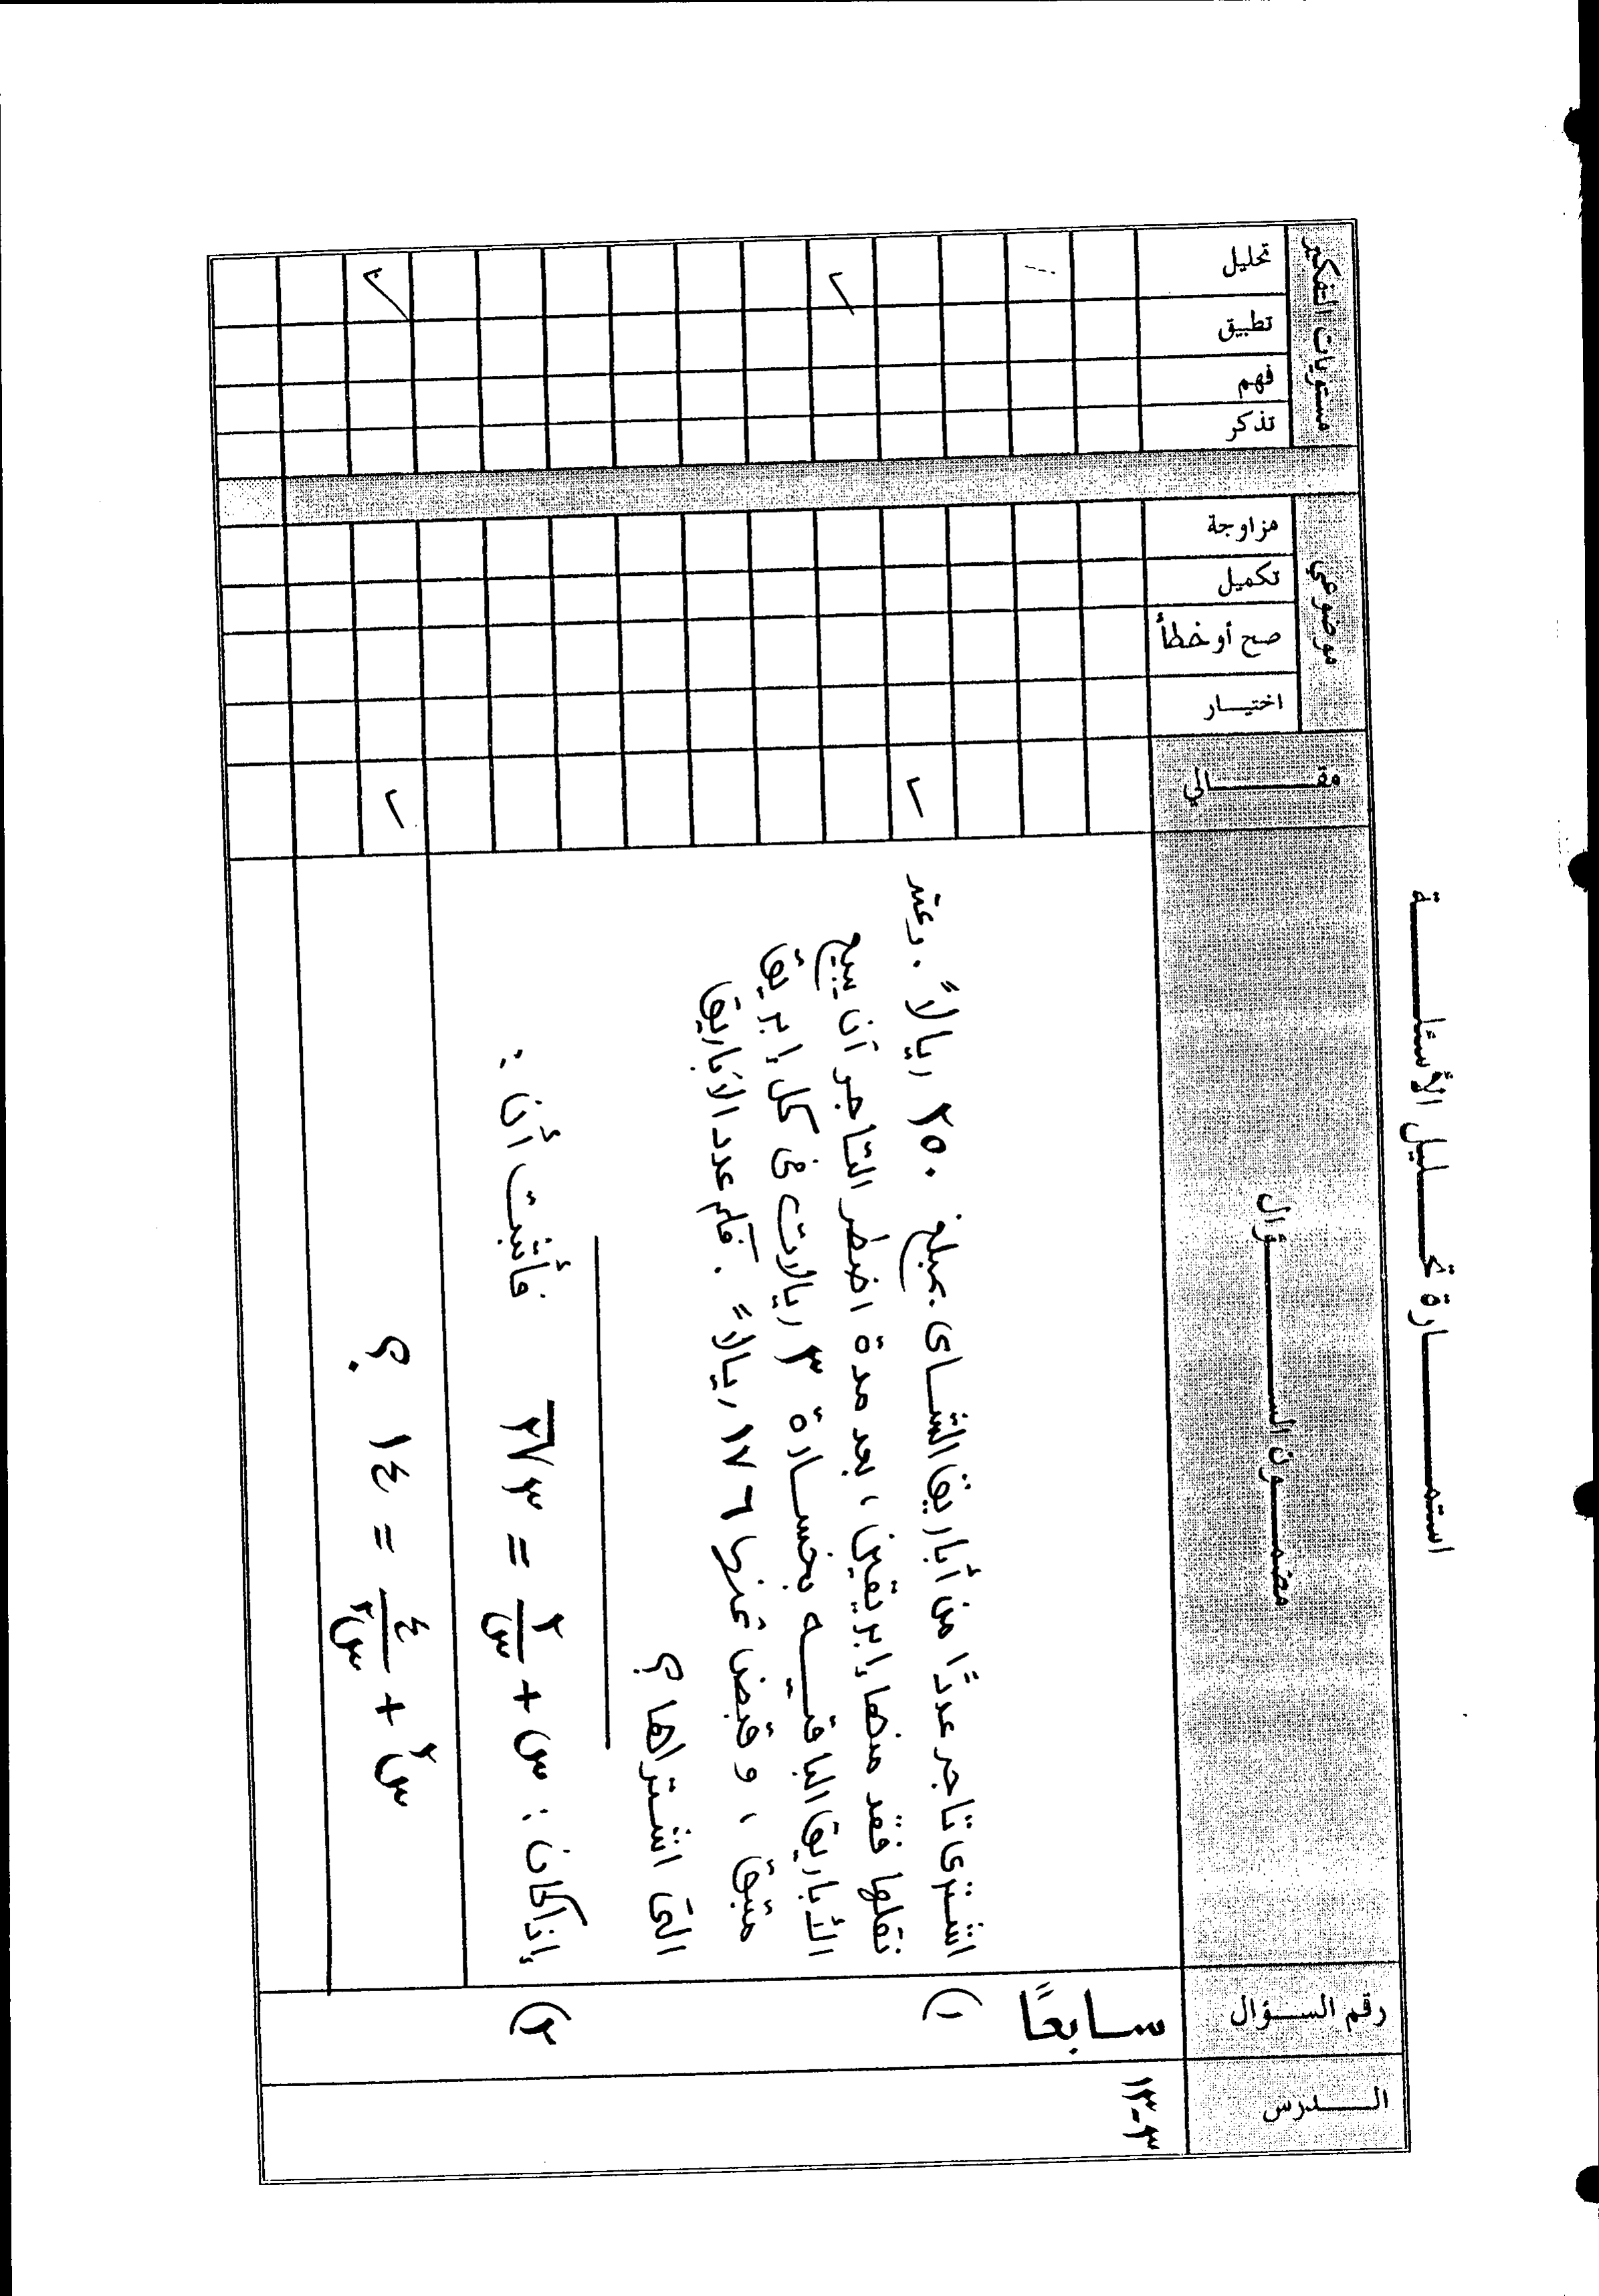 استمارة تحليل الأسئلة
الدرس
رقم السؤال
مضمون السؤال
مقالي
موضوعي
اختيار
صح أو خطأ
تكميل
مزاوجة
مستويات التفكير
تذكر
فهم
تطبيق
تحليل
٣-١٣
سابعًا
(١)
اشترى تاجر عددًا من أباريق الشاى بمبلغ ٢٥٠ ريالاً. وعند
نقلها فقد منها إبريقين، بعد مدة اضطر التاجر أن يبيع
الأباريق الباقيه بخسارة ٣ ريالات فى كل إبريق
متبق، وقبض ثمنها ١٧٦ ريالاً. فكم عدد الأباريق
التى اشتراها؟
(٢)
إذا كان: س + ٢/س = ٣√٢ فأثبت أن:
س² + ٤/س² = ١٤ ؟